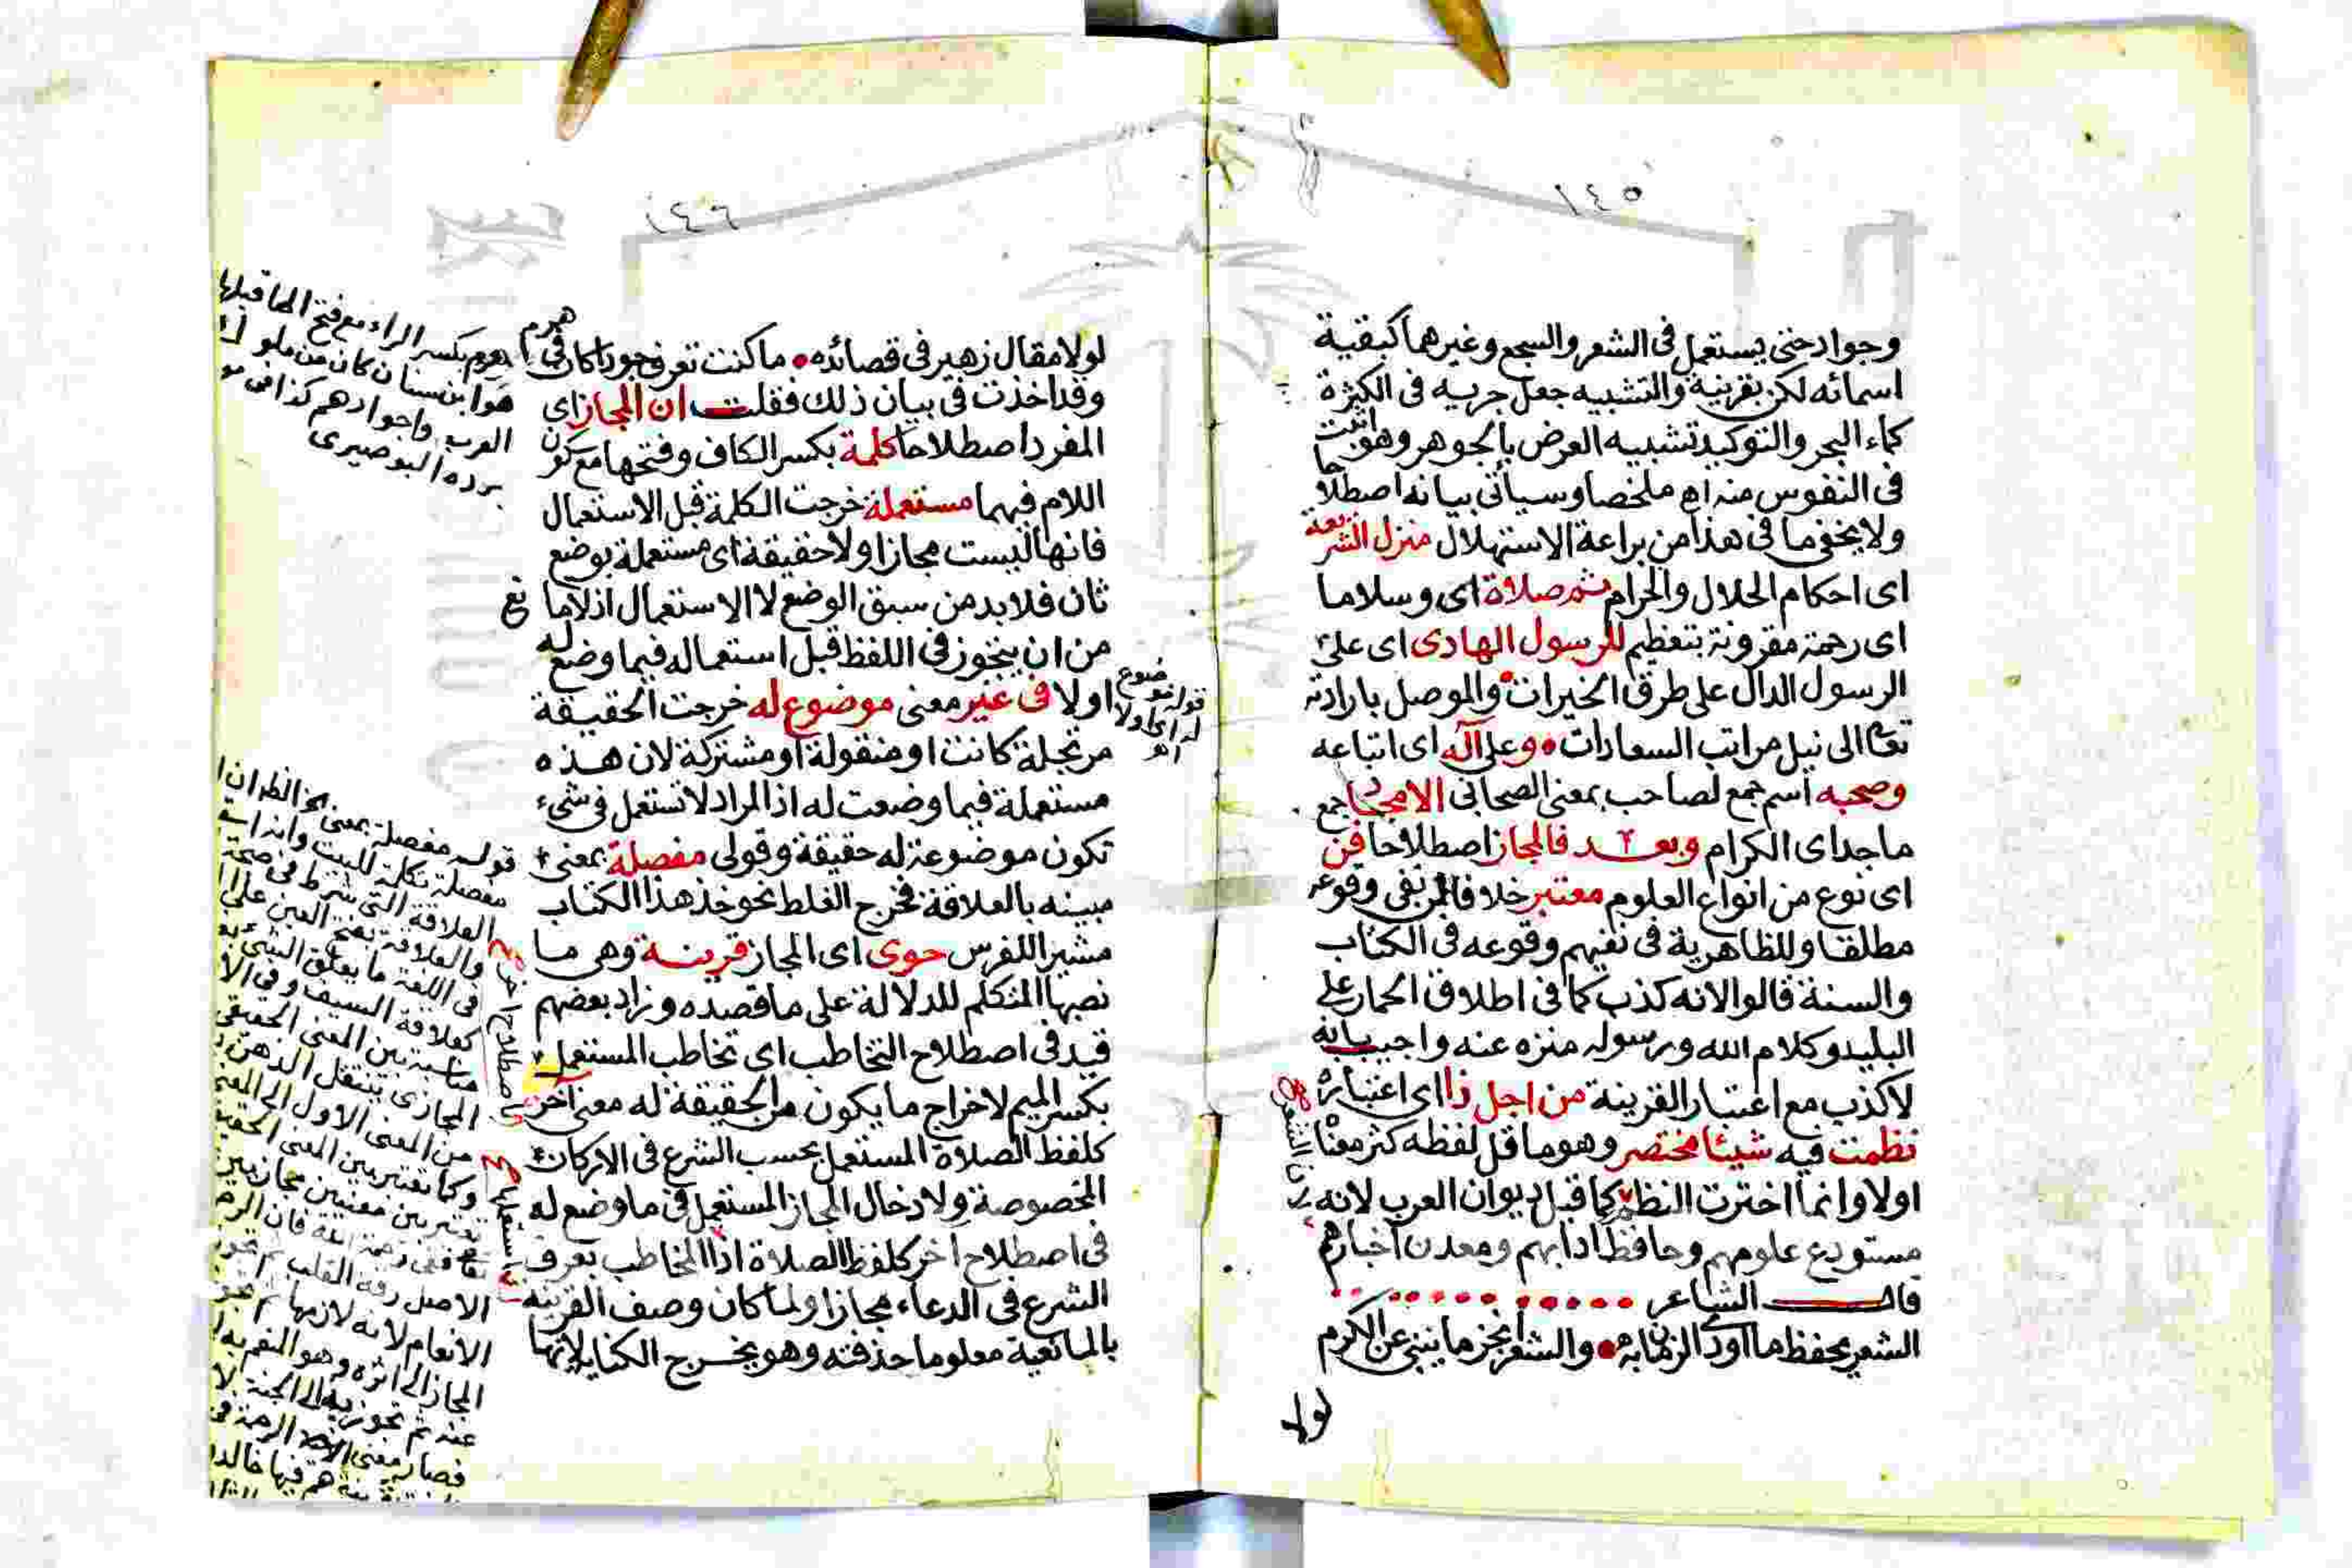 ١٤٥
وجواد حتى يستعمل فى الشعر والسجع وغيرهما كبقية
اسمائه لكن بقرينة والتشبيه جعل جريه فى الكثرة
كماء البحر والتوكيد تشبيه العرض بالجوهر وهو اثبت
فى النفوس منه اهـ ملخصا وسيأتى بيانه اصطلاحا
ولا يخفى ما فى هذا من براعة الاستهلال منزل الشريعة
اى احكام الحلال والحرام ثم صلاة اى وسلاما
اى رحمة مقرونة بتعظيم للرسول الهادى اى على
الرسول الدال على طرق الخيرات والموصل بارادته
تعالى الى نيل مراتب السعادات وعلى آله اى اتباعه
وصحبه اسم جمع لصاحب بمعنى الصحابى الامجاد جمع
ماجد اى الكرام وبعد فالمجاز اصطلاحا فن
اى نوع من انواع العلوم معتبر خلافا لمن نفى وقوعه
مطلقا وللظاهرية فى نفيهم وقوعه فى الكتاب
والسنة قالوا لانه كذب كما فى اطلاق الحمار على
البليد وكلام الله ورسوله منزه عنه واجيب بانه
لا كذب مع اعتبار القرينة من اجل ذا اى اعتباره
نظمت فيه شيئا مختصر وهو ما قل لفظه كثر معناه
اولا وانما اخترت النظم كما قيل ديوان العرب لانه
مستودع علومهم وحافظ ادابهم ومعدن اخبارهم
قال الشاعر
الشعر يحفظ ما اودى الزمان به والشعر افخر ما ينبى عن الكرم
لولا
١٤٦
لولا مقال زهير فى قصائده ما كنت تعرف جودا كان فى هرم
وقد اخذت فى بيان ذلك فقلت ان المجاز اى
المفرد اصطلاحا كلمة بكسر الكاف وفتحها مع كون
اللام فيهما مستعملة خرجت الكلمة قبل الاستعمال
فانها ليست مجازا ولا حقيقة اى مستعملة بوضع
ثان فلا بد من سبق الوضع لا الاستعمال اذ لا مانع
من ان يتجوز فى اللفظ قبل استعماله فيما وضع له
اولا فى غير معنى موضوع له خرجت الحقيقة
مرتجلة كانت او منقولة او مشتركة لان هذه
مستعملة فيما وضعت له اذ المراد لا تستعمل فى شىء
تكون موضوعة له حقيقة وقولى مفصلة بمعنى
مبينه بالعلاقة فخرج الغلط نحو خذ هذا الكتاب
مشيرا للفرس حوى اى المجاز قرينة وهى ما
نصبها المتكلم للدلالة على ما قصده وزاد بعضهم
قيد فى اصطلاح التخاطب اى تخاطب المستعمل
بكسر الميم لاخراج ما يكون من الحقيقة له معنى آخر
كلفظ الصلاة المستعمل بحسب الشرع فى الاركان
المخصوصة ولادخال المجاز المستعمل فى ما وضع له
فى اصطلاح آخر كلفظ الصلاة اذا المخاطب بعرف
الشرع فى الدعاء مجازا ولما كان وصف القرينة
بالمانعية معلوما حذفته وهو يخرج الكناية لانها
هرم بكسر الراء مع فتح الها قبلها
هو ابن سنان كان من ملوك
العرب واجوادهم كذا فى
برده البوصيرى
قوله موضوع
له اى اولا
اهـ
قوله مفصلة بمعنى
مفصلة تكملة للبيت
العلاقة التى شرط فى صحة
والعلاقة بفتح العين على
فى اللغة ما يعلق الشئ به
كعلاقة السيف وفى
مناسبة بين المعنى الحقيقى
المجازى ينتقل الذهن
من المعنى الاول الى المعنى
وكما تعتبر بين المعنى
تعتبر بين معنيين مجازيين
الاصل رقة القلب ثم
الانعام لانه لازمها ثم
المجاز الى اثره وهو
عنه ثم تجوز به الى الجنة
فصار معنى
هم فيها